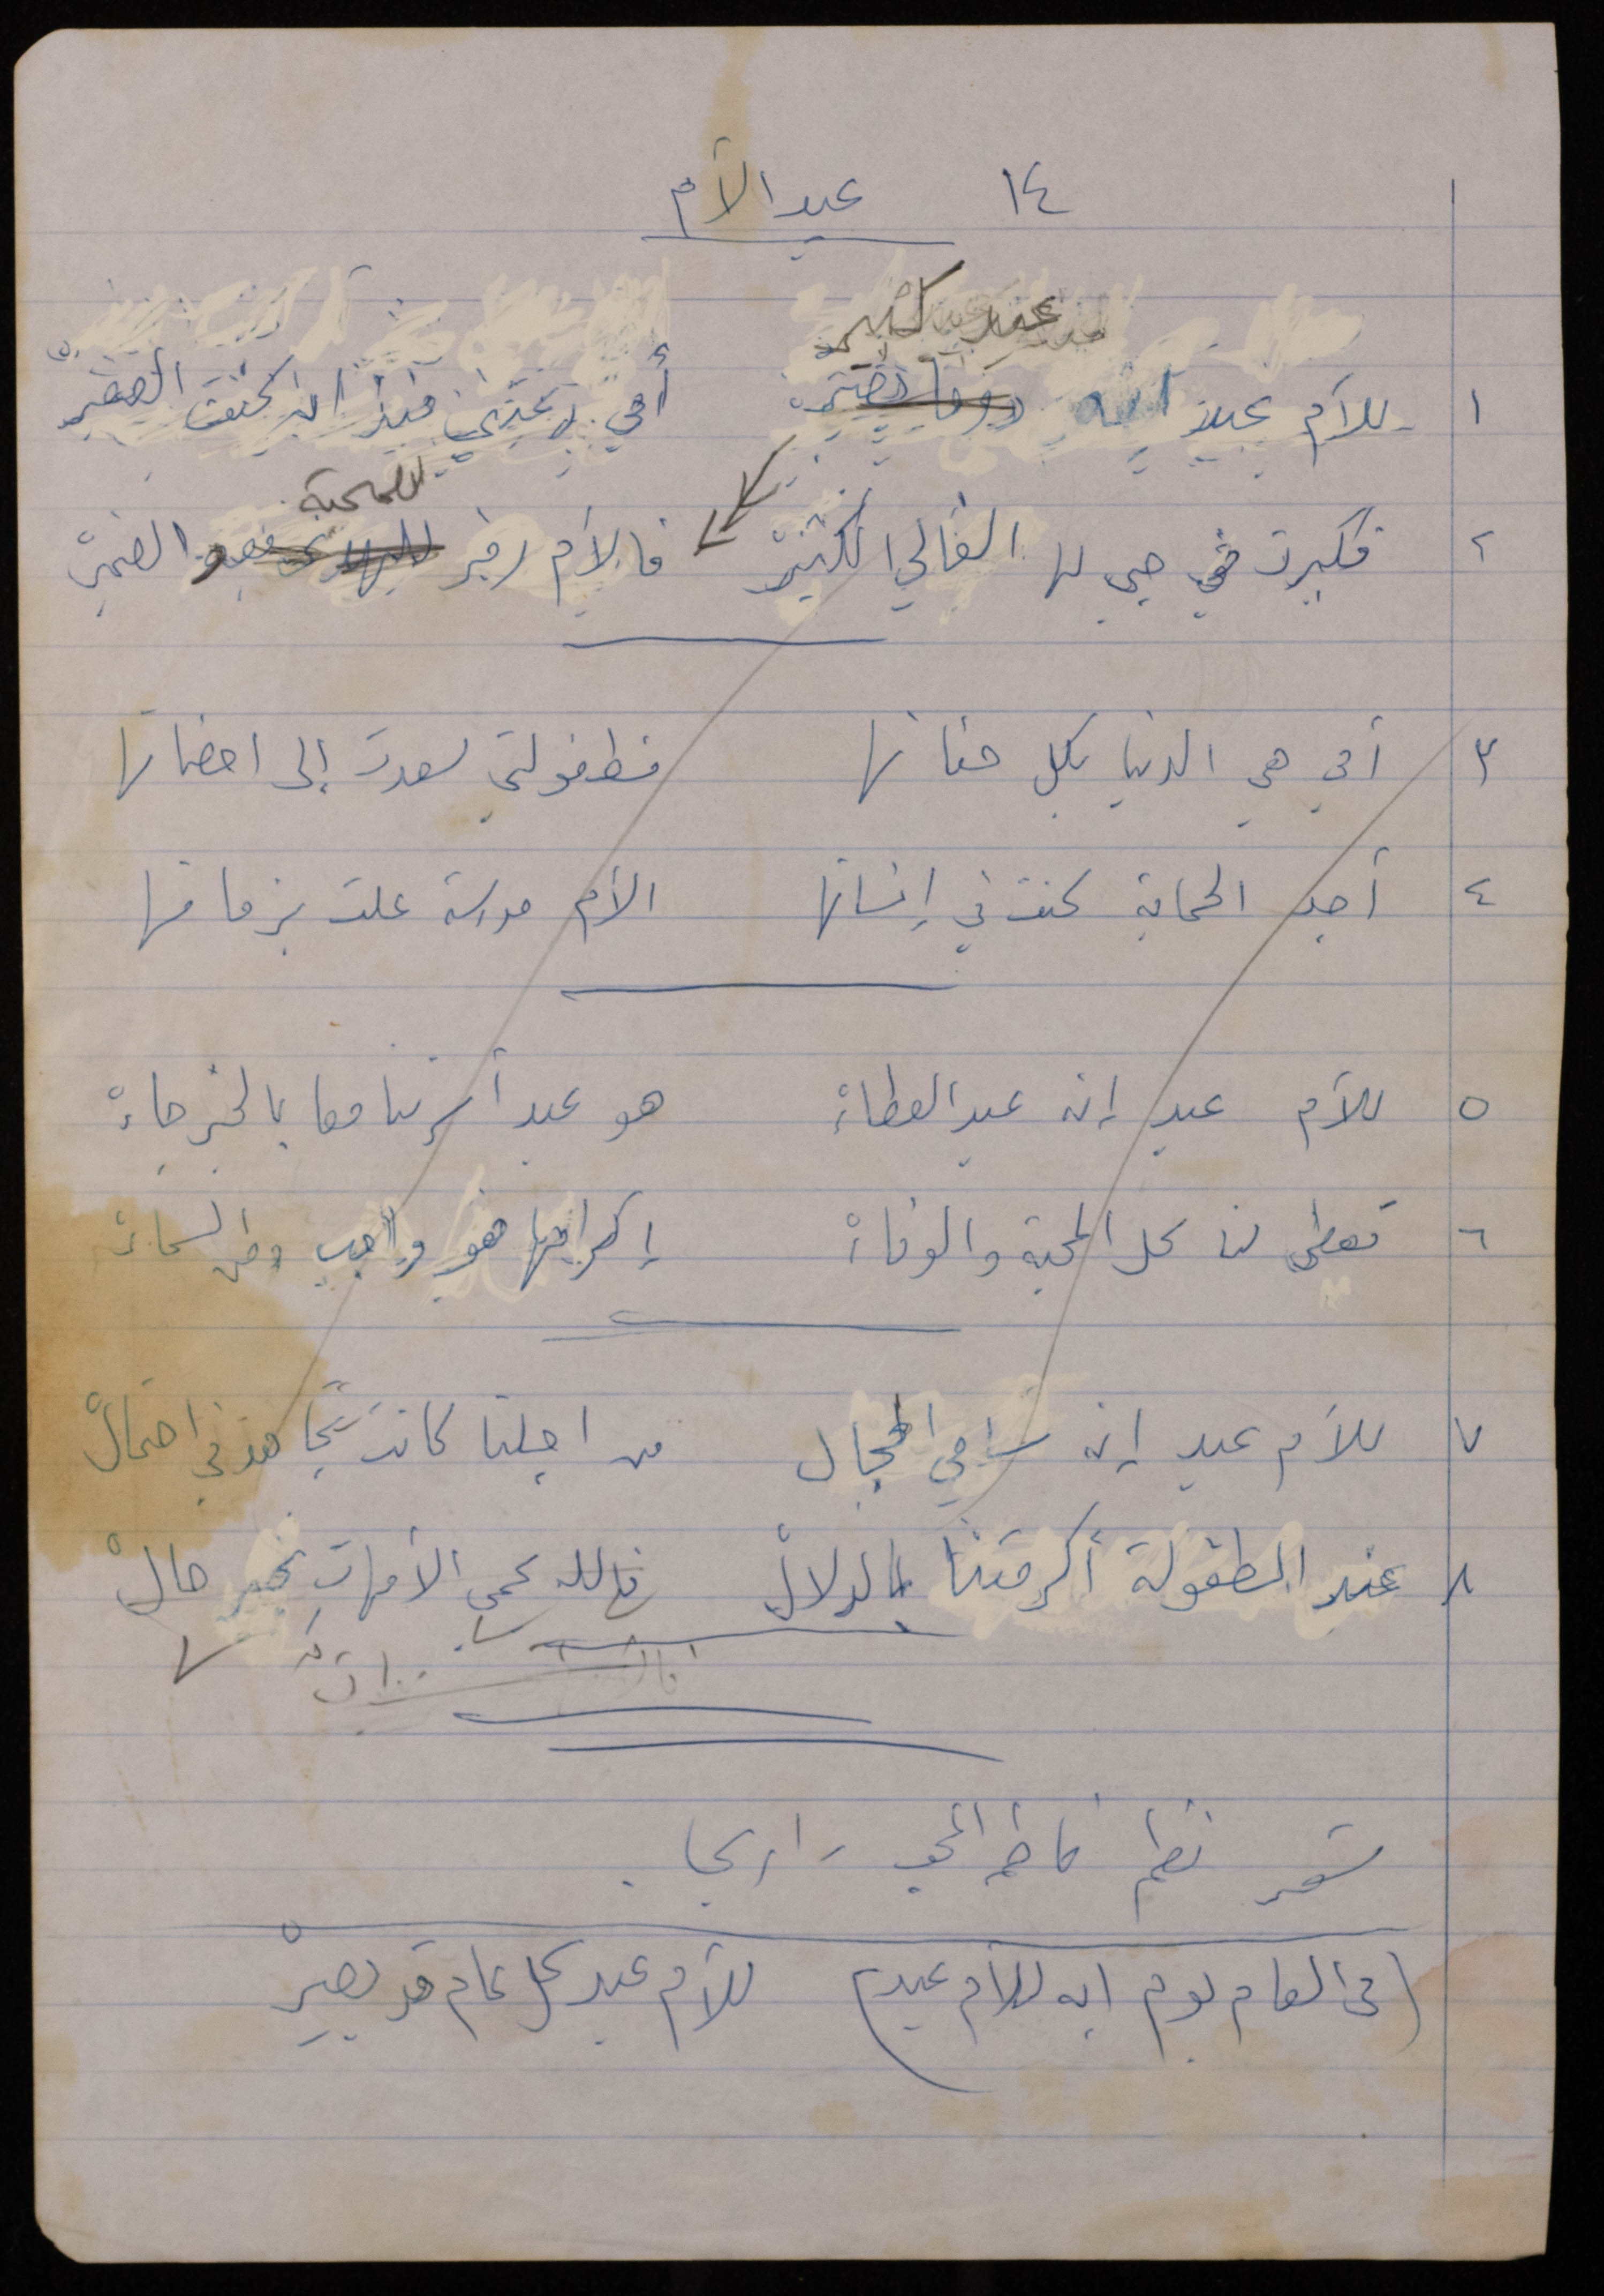 ١٤ عيد الأم
عيد كبير
١ للأم عيد إنه دوما يصير أمي رعتني منذ ان كنت الصغير
للمحبة
٢ فكبرت في حبي لها الغالي الكثير فالأم رمز الضمير
٣ أمي هي الدنيا بكل حنانها فطفولتي سعدت إلى احضانها
٤ أجد الحماية كنت في إنسانها الأم مدرسة علت بزمانها
٥ للأم عيد إنه عيد العطاء هو عيد أسرتنا معا بالخير جاء
٦ تعطي لنا كل المحبة والوفاء إكرامها هو واجب وطن السماء
٧ للأم عيد إنه سامي المجال من اجلنا كانت تجاهد في احتمال
٨ عند الطفولة أكرمتنا بالدلال فالله يحمي الأمهات بخير حال
شعر نظم
(في العام يوم انه للأم عيد) للأم عيد كل عام قد يصير